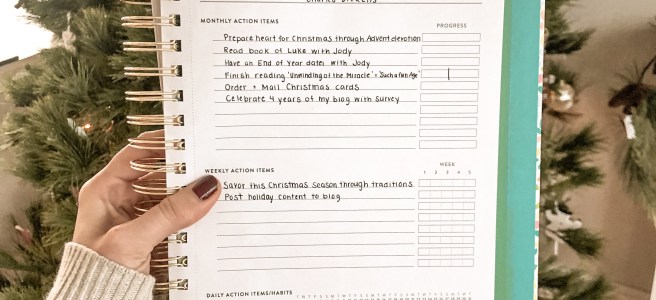 Charles Dickens
MONTHLY ACTION ITEMS
PROGRESS
Prepare heart for Christmas through Advent devotion
Read book of Luke with Jody
Have an End of year date! with Jody
Finish reading 'Unwinding of the Miracle' + 'Such a Fun Age'
Order + Mail Christmas cards
Celebrate 4 years of my blog with survey
WEEKLY ACTION ITEMS
WEEK
1 2 3 4 5
Savor this Christmas season through traditions
Post holiday content to blog
DAILY ACTION ITEMS/HABITS